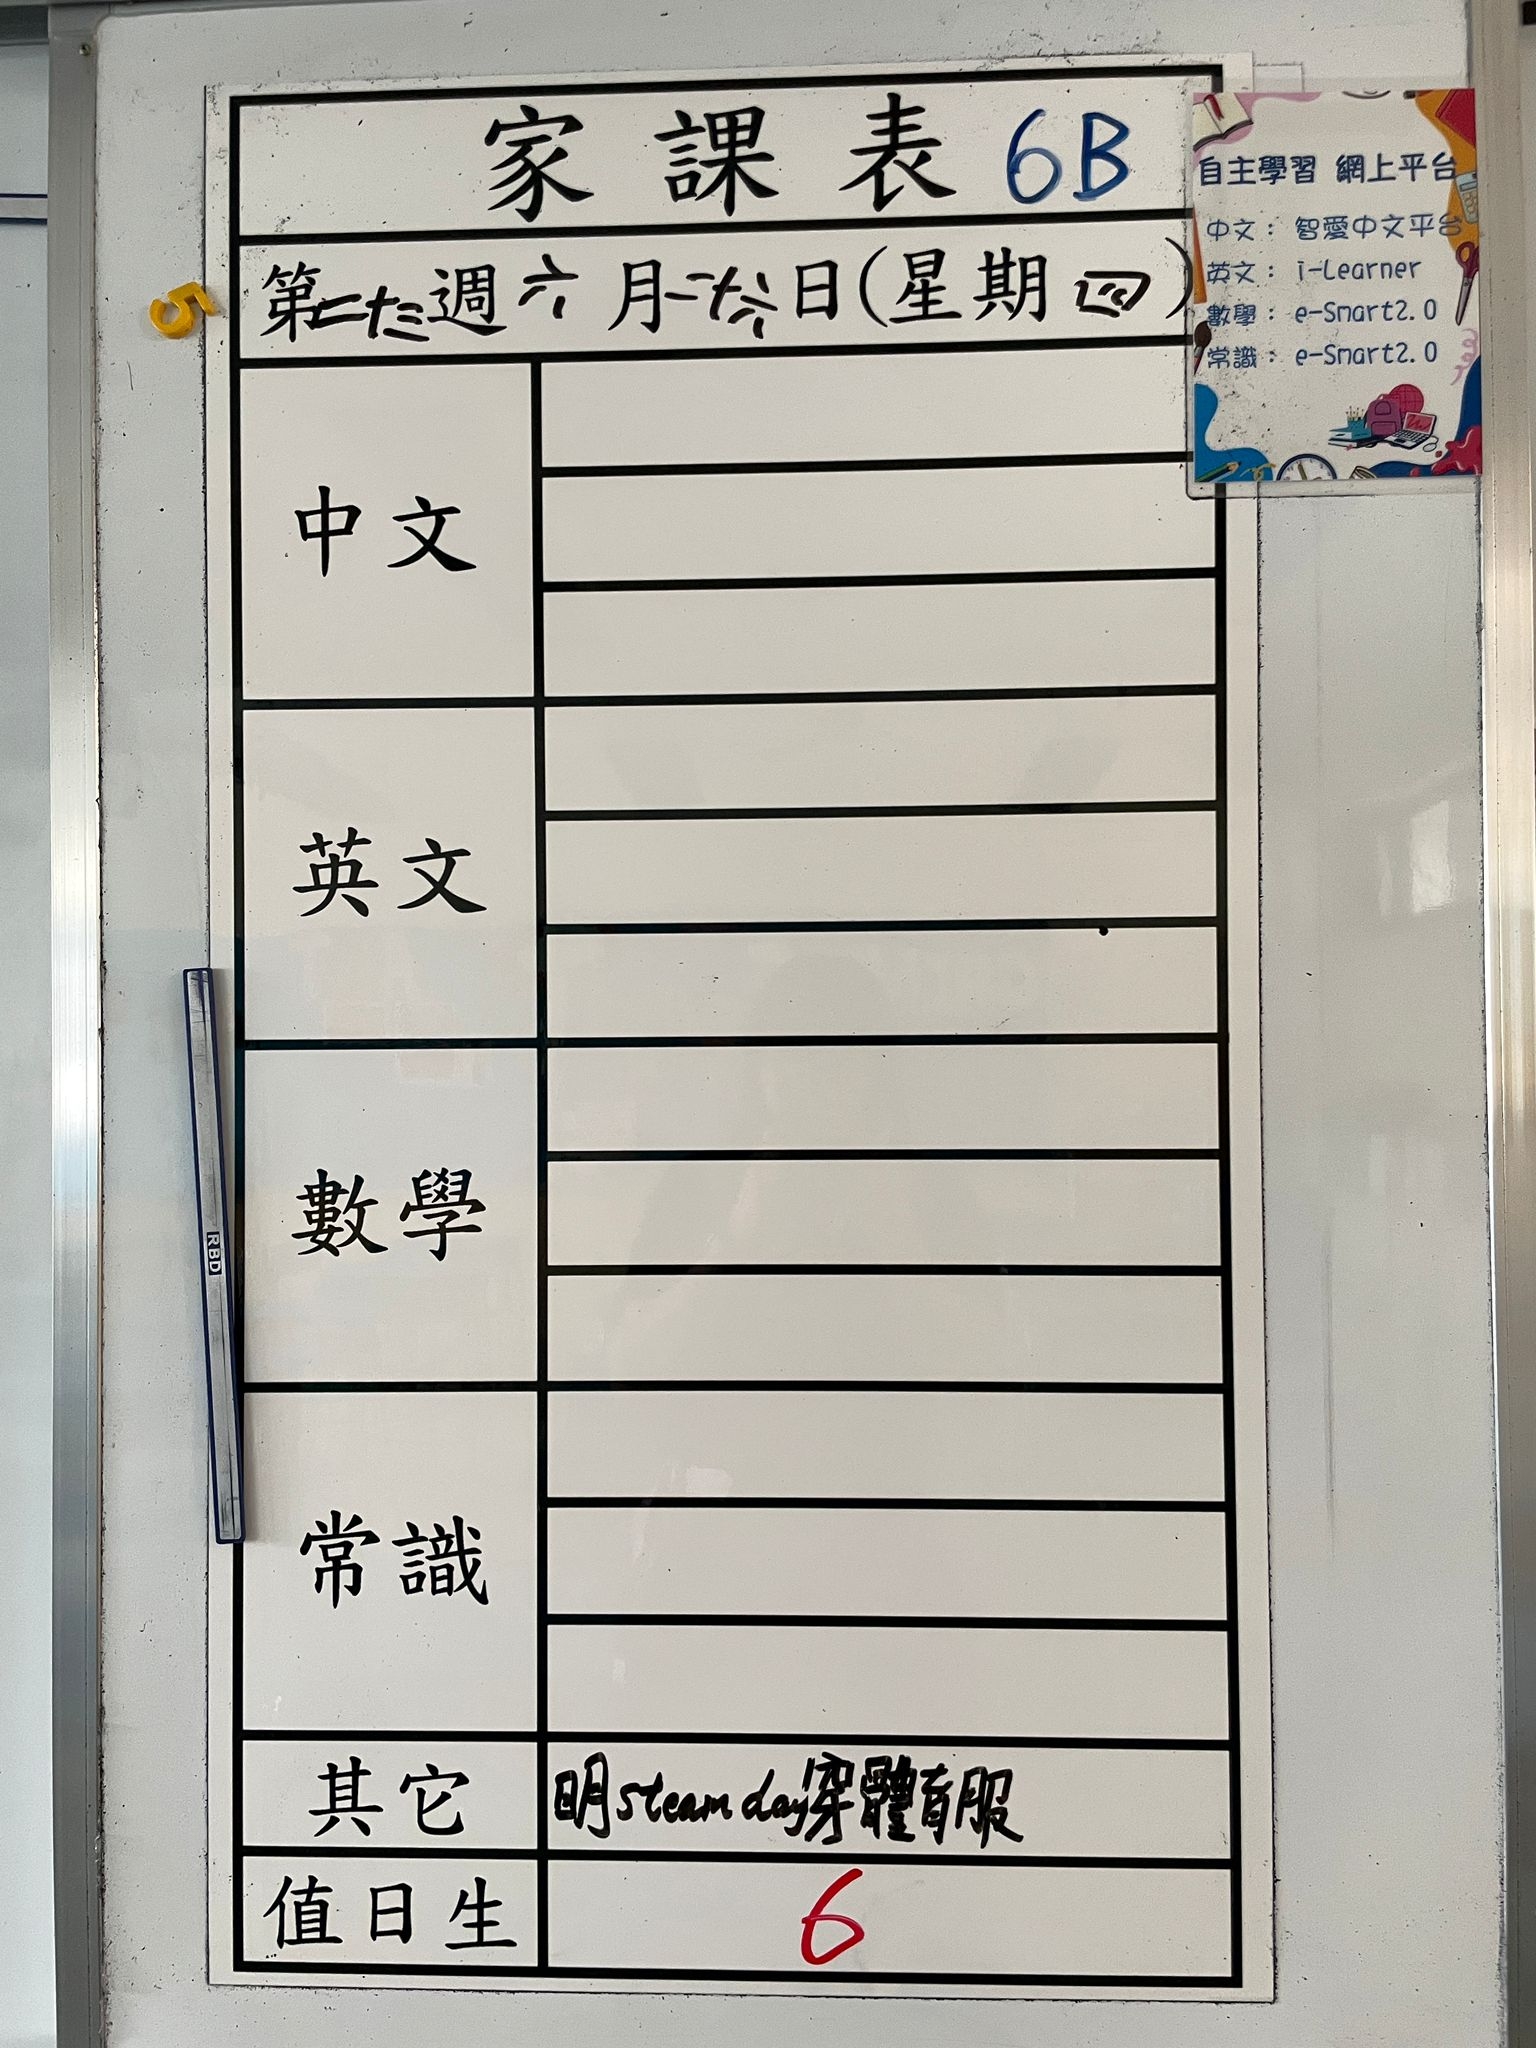 家課表 6B
第二十三週六月二十六日(星期四)
自主學習 網上平台
中文： 智愛中文平台
英文： i-Learner
數學： e-Smart2.0
常識： e-Smart2.0
5
中文
英文
數學
RBD
常識
其它 明steam day穿體育服
值日生 6